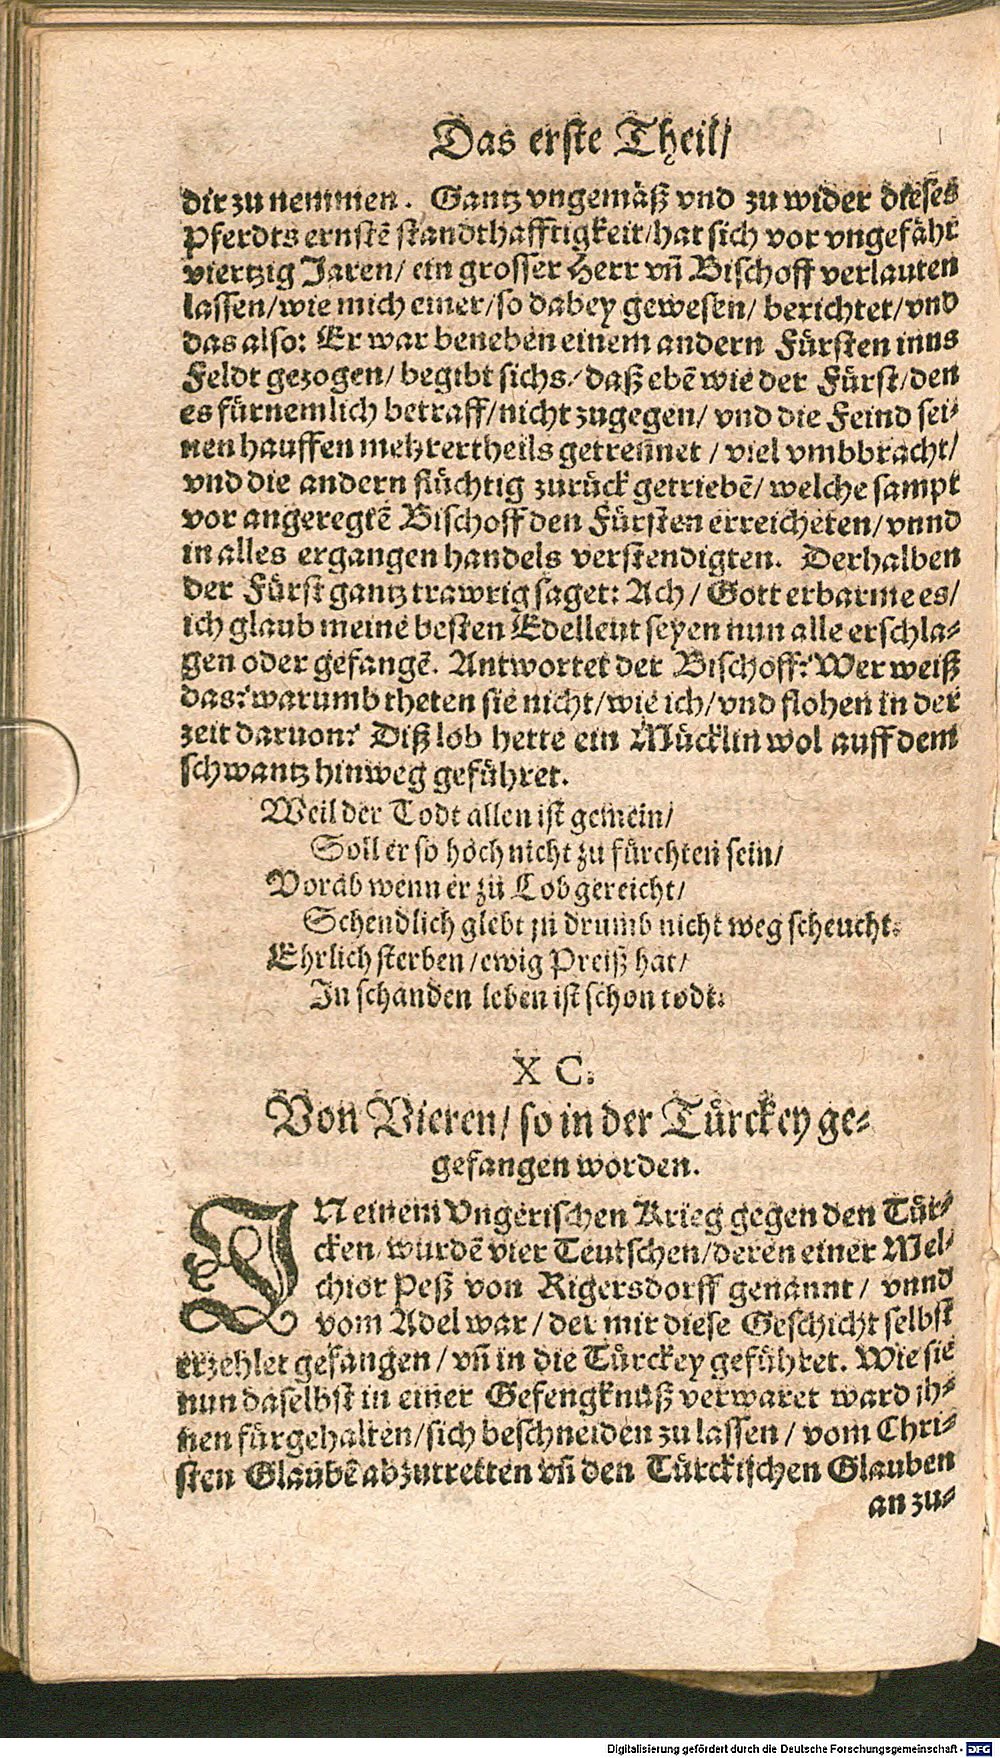 Das erste Theil/
dir zu nemmen. Gantz vngemäß vnd zu wider dieses
Pferdts ernstē standthafftigkeit/hat sich vor vngefähr
viertzig Jaren/ ein grosser Herr vñ Bischoff verlauten
lassen/wie mich einer/so dabey gewesen/ berichtet/vnd
das also: Er war beneben einem andern Fürsten inns
Feldt gezogen/ begibt sichs/ daß ebē wie der Fürst/den
es fürnemlich betraff/nicht zugegen/ vnd die Feind sei⸗
nen hauffen mehrertheils getreñnet / viel vmbbracht/
vnd die andern flüchtig zurück getriebē/ welche sampt
vor angeregtē Bischoff den Fürsten erreicheten/ vnnd
in alles ergangen handels verstendigten. Derhalben
der Fürst gantz trawrig saget: Ach/ Gott erbarme es/
ich glaub meine besten Edelleut seyen nun alle erschla⸗
gen oder gefangē. Antwortet der Bischoff: Wer weiß
das? warumb theten sie nicht/wie ich/vnd flohen in der
zeit daruon? Diß lob hette ein Mücklin wol auff dem
schwantz hinweg geführet.
Weil der Todt allen ist gemein/
Soll er so hoch nicht zu fürchten sein/
Vorab wenn er zu Lob gereicht/
Schendlich glebt zu drumb nicht weg scheucht.
Ehrlich sterben/ewig Preiß hat/
In schanden leben ist schon todt.
X C.
Von Vieren/ so in der Türckey ge⸗
gefangen worden.
IN einem Vngerischen Krieg gegen den Tür⸗
cken/ wurdē vier Teutschen/deren einer Mel⸗
chior Peß von Rigersdorff genannt/ vnnd
vom Adel war/ der mir diese Geschicht selbst
erzehlet gefangen/ vñ in die Türckey geführet. Wie sie
nun daselbst in einer Gefengknuß verwaret ward jh⸗
nen fürgehalten/sich beschneiden zu lassen/ vom Chri⸗
sten Glaubē abzutretten vñ den Türckischen Glauben
an zu⸗
Digitalisierung gefördert durch die Deutsche Forschungsgemeinschaft - DFG